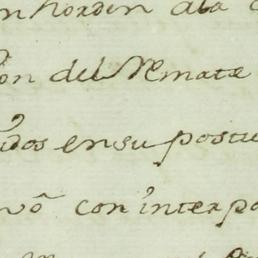 horden ala
on del Remate
idos ensu postu
vó con interpo